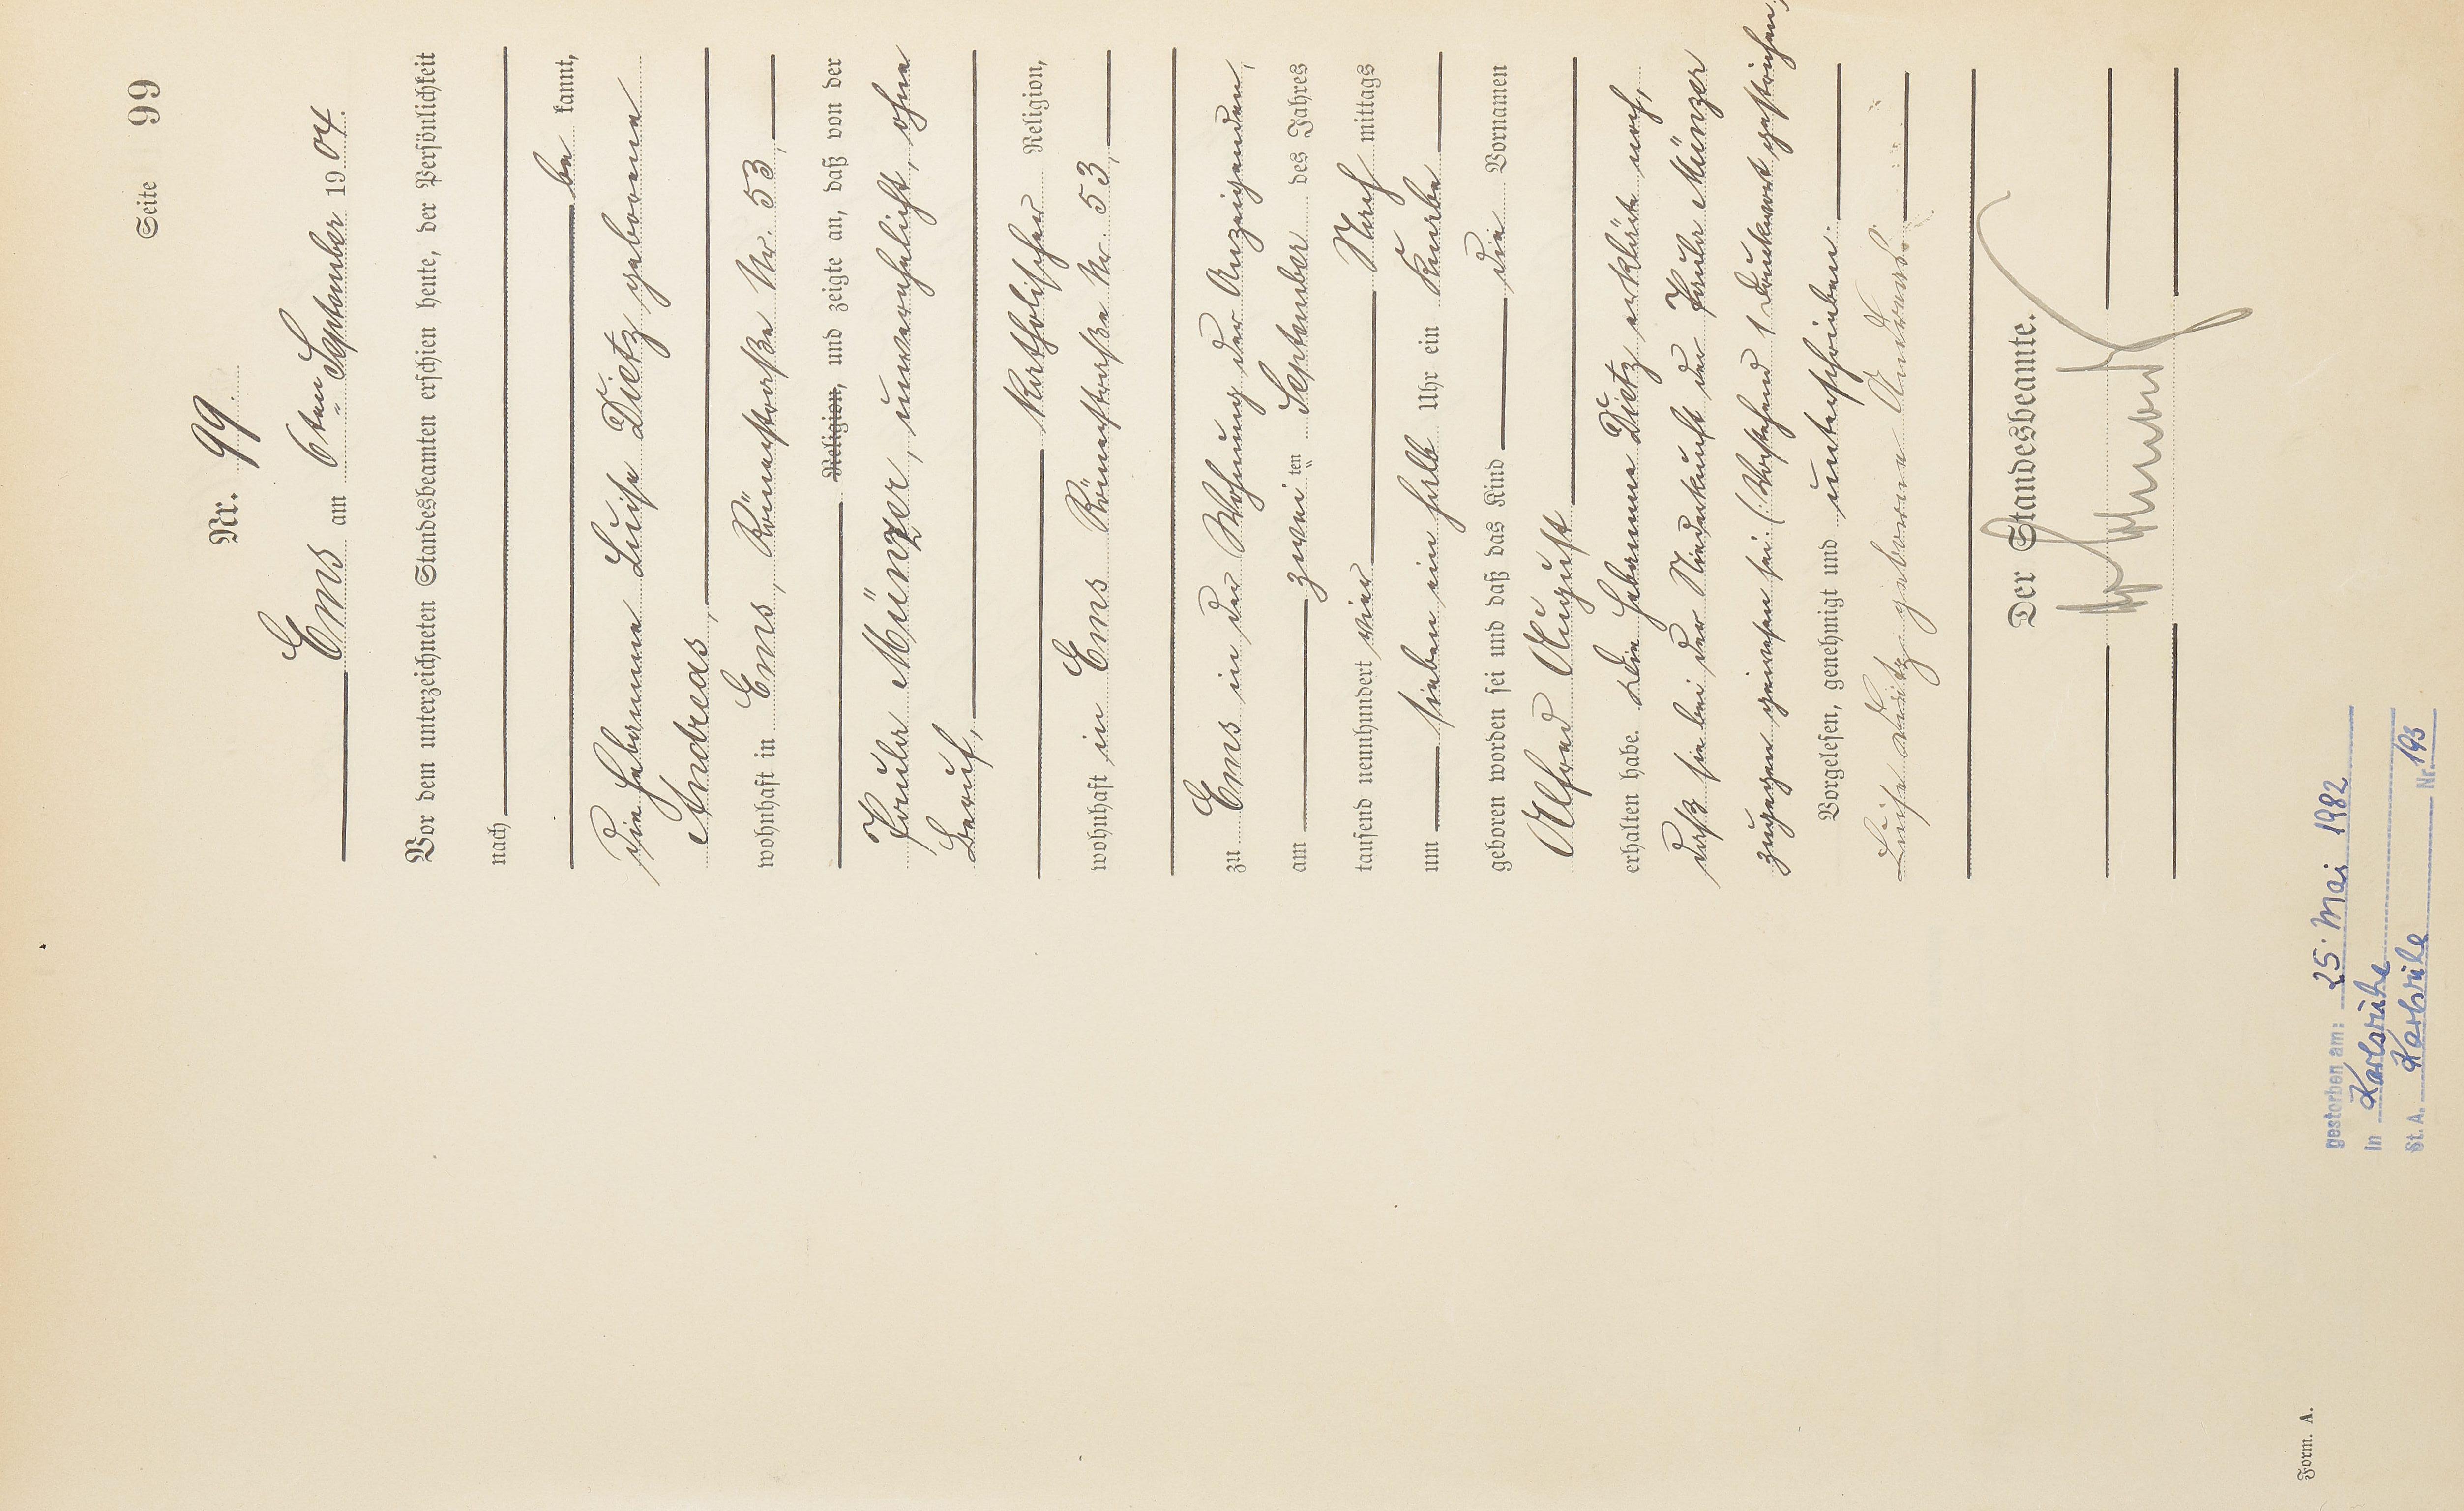 Seite 99
Nr. 99.
Ems am 6ten September 1904.
Vor dem unterzeichneten Standesbeamten erschien heute, der Persönlichkeit
nach
be kannt,
die Hebamme Luise Dietz geborene
Andreas,
wohnhaft in Ems, Römerstraße Nr. 53,
Religion, und zeigte an, daß von der
Paula Münzer, unverehelicht, ohne
Beruf,
katholischer Religion,
wohnhaft in Ems Römerstraße Nr. 53,
zu Ems in der Wohnung der Anzeigenden,
am zwei ten September des Jahres
tausend neunhundert vier Nach mittags
um sieben ein halb Uhr ein Knabe
geboren worden sei und daß das Kind die Vornamen
Alfred August
erhalten habe. Die Hebamme Dietz erklärte noch,
daß sie bei der Niederkunft der Paula Münzer
zugegen gewesen sei. (Vorstehend 1 Druckwort gestrichen.)
Vorgelesen, genehmigt und unterschrieben.
Luise Dietz geborene Andreas.
Der Standesbeamte.
gestorben am: 25. Mai 1982
in Karlsruhe
St. A. Karlsruhe Nr. 193
Form. A.